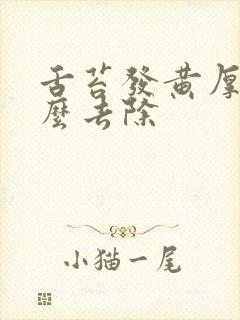 舌苔發黃厚
麼去除
小猫一尾